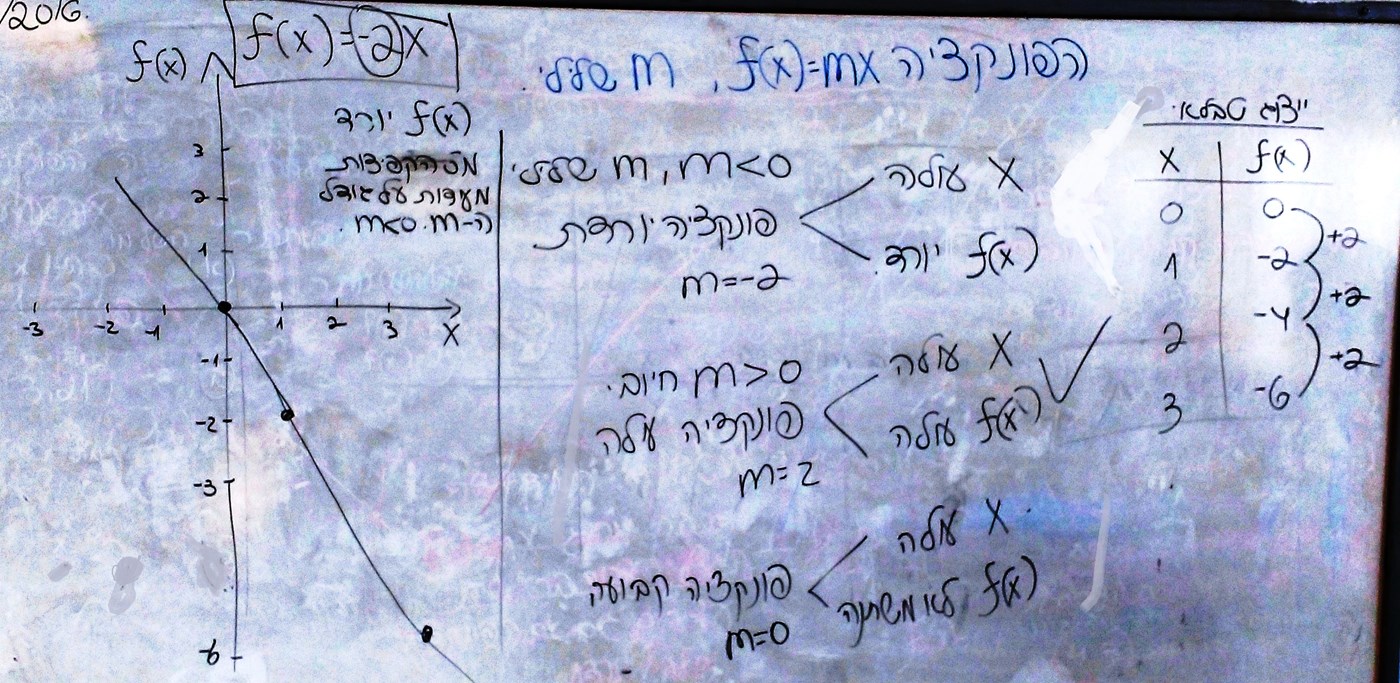 /2016
הפונקציה f(x)=mx, m שלילי.
f(x)=-2x
f(x)
f(x) יורד
מס' הקפיצות
מעידות על גודל
ה-m. m<0.
3
2
1
-3 -2 -1 1 2 3 X
-1
-2
-3
-6
m<0, m שלילי
פונקציה יורדת
m=-2
X עולה
f(x) יורד.
m>0 חיובי.
פונקציה עולה
m=2
X עולה
f(x) עולה
פונקציה קבועה
m=0
X עולה
f(x) לא משתנה
ייצוג טבלאי
X f(x)
0 0
1 -2
2 -4
3 -6
+2
+2
+2